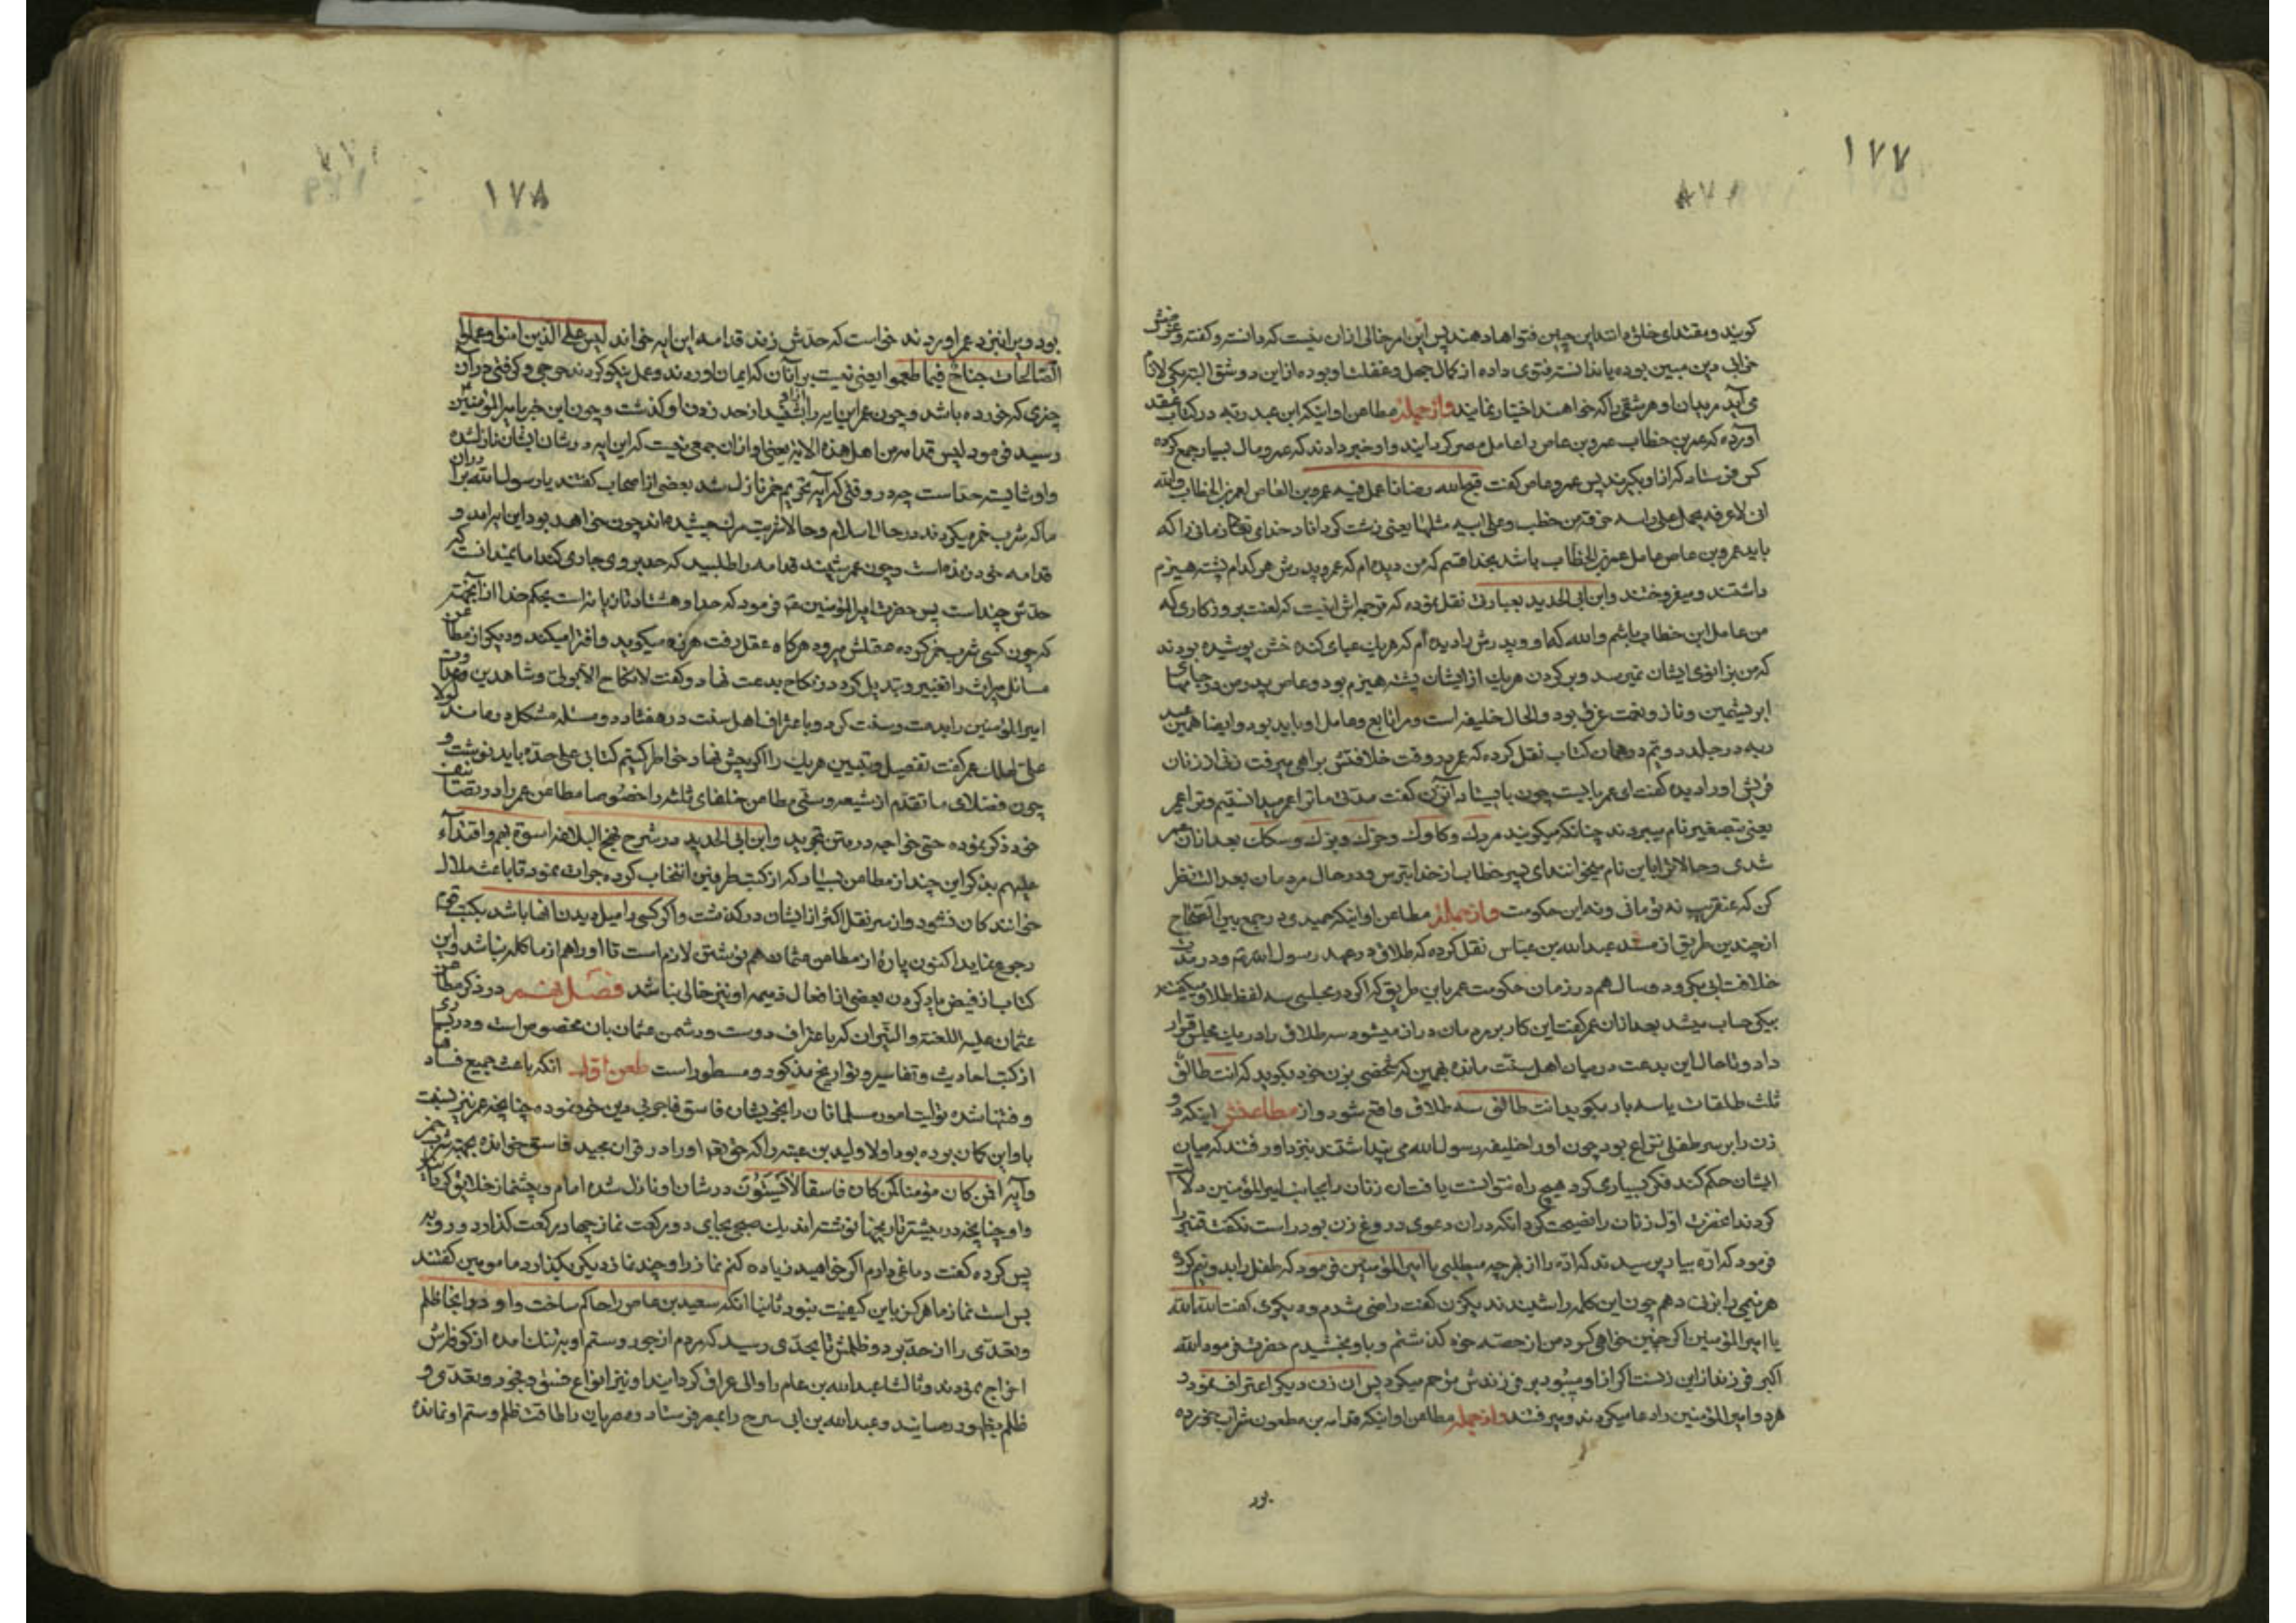 ١٧٧
گویند و مقتدای خلق دانند این چنین فتواها دهند پس این امر خالی ازان نیست که دانسته گفته و غرضش
خرابی دین مبین بوده یا ندانسته فتوی داده از کمال جهل و غفلت او بوده ازین دو شق البته یکی لازم
می آید مریدان او هر شقی را که خواهند اختیار نمایند و از جمله مطاعن او اینکه ابن عبد ربه در کتاب عقد
آورده که عمر بن خطاب عمرو بن عاص را عامل مصر گردانید و او خبر دادند که عمرو مال بسیار جمع کرده
کس فرستاد که از او بگیرند پس عمرو عاص گفت قبح الله زمانا عمل فیه عمرو بن العاص لعمر بن الخطاب والله
انی لاعرفه یحمل علی راسه حزمة من حطب و علی ابیه مثلها یعنی زشت گرداناد خدای تعالی زمانی را که
باید عمرو بن عاص عامل عمر بن الخطاب باشد بخدا قسم که من دیده ام که عمر و پدرش هر کدام پشته هیزم
داشتند و میفروختند و ابن ابی الحدید بعبارتی نقل نموده که ترجمه اش اینست که لعنت بر روزگاری که
من عامل ابن خطاب باشم والله که او و پدرش را دیده ام که هر یک عبای کهنه خشن پوشیده بودند
که من بزانوی ایشان نمیرسد و بر گردن هر یک از ایشان پشته هیزم بود و عاص پدر من در جبهای
ابریشمین و ناز و نعمت غرق بود و الحال خلیفه است و مرا تابع و عامل او باید بود و ایضا همین عبد
ربه در جلد دویم در همان کتاب نقل کرده که عمر در وقت خلافتش براهی میرفت زنی از زنان
قریش او را دیده گفت ای عمر بایست چون بایستاد آنزن گفت مدتی ما ترا عمیر میدانستیم و ترا عمیر
یعنی بتصغیر نام میبردند چنانکه میگویند مردک و کاوک و خرک و بزک و سگک بعد ازان عمر
شدی و حالا ترا باین نام میخوانند ای پسر خطاب از خدا بترس و در حال مردمان بعدالت نظر
کن که عنقریب نه تو مانی و نه این حکومت و از جمله مطاعن او اینکه حمیدی در جمع بین الصحاح
از چندین طریق از مسند عبدالله بن عباس نقل کرده که طلاق در عهد رسول الله ص و در زمان
خلافت ابی بکر و دو سال هم در زمان حکومت عمر باین طریق که اگر در مجلسی سه لفظ طلاق میگفتند
بیکی حساب میشد بعد ازان عمر گفت این کار بر مردمان دراز میشود سه طلاق را در یک مجلس قرار
داد و تا حال این بدعت در میان اهل سنت مانده همین که شخصی بزن خود بگوید که انت طالق
ثلث طلقات یا سه بار بگوید انت طالق سه طلاق واقع شود و از مطاعنش اینکه دو
زن را بر سر طفلی نزاع بود چون او را خلیفه رسول الله می پنداشتند بنزد او رفتند که میان
ایشان حکم کند فکر بسیاری کرد هیچ راه نتوانست یافت آن زنان را بجانب امیرالمؤمنین دلالت
کردند آنحضرت اول زنان را نصیحت کرد آنکه دران دعوی دروغ زن بود راست نگفت قنبر را
فرمود که اره بیاور پرسیدند که اره را از بهر چه میطلبی یا امیرالمؤمنین فرمود که طفل را بدو نیم کرده
هر نیمی را بزنی دهم چون این کلمه را شنیدند یک زن گفت راضی شدم و دیگری گفت الله الله
یا امیرالمؤمنین اگر چنین خواهی کرد من از حصه خود گذشتم و باو بخشیدم حضرت فرمود الله
اکبر فرزند از این زنست اگر از او میبود بر فرزندش رحم میکرد پس ان زن دیگر اعتراف نمود و
هر دو امیرالمؤمنین را دعا میکردند و میرفتند و از جمله مطاعن او اینکه قدامه بن مظعون شراب خورده
بود
١٧٨
بود و پرا نزد عمر اوردند خواست که حدش زند قدامه این ایه خواند لیس علی الذین امنوا و عملوا
الصالحات جناح فیما طعموا یعنی نیست بر آنان که ایمان اوردند و عمل نیکو کردند حرجی و گرفتی در آن
چیزی که خورده باشد و چون عمر این ایه را شنید از حد زدن او گذشت و چون این خبر بامیرالمؤمنین
رسید فرمود لیس قدامه من اهل هذه الایة یعنی او ازان جمعی نیست که این ایه در شان ایشان نازلشده
و او شایسته حد است چه در وقتی که آیه تحریم خمر نازل شد بعضی از اصحاب کفتند یا رسول الله برادران
ما که شرب خمر میکردند در حال اسلام و حالا شربت مرک چشیده اند چون خواهد بود این ایه امد و
قدامه خود زنده است و چون عمر شنید قدامه را طلبید که حد بر وی جاری کند اما نمیدانست که
حدش چند است پس حضرت امیرالمؤمنین ع فرمود که حد او هشتاد تازیانه است بحکم خدا از آنجهت
که چون کسی شرب خمر کرده عقلش میرود هرگاه عقل رفت هرزه میگوید و افترا میکند و دیگر از مطاعن
مسائل میراث را تغییر و تبدیل کرد در نکاح بدعت نهاد و گفت لا نکاح الا بولی و شاهدین و عداوت
امیرالمؤمنین را بدعت و سنت کرد و باعتراف اهل سنت در هفتاد و دو مسئله مشکل درماند لولا
علی لهلک عمر گفت تفصیل و تبیین هر یک را اگر پیش نهاد خاطر کنیم کتابی علی حده باید نوشت و
چون فضلای ما تقدم از شیعه و سنی مطاعن خلفای ثلثه را خصوصا مطاعن عمر را در تصانیف
خود ذکر نموده حتی خواجه در متن تجرید و ابن ابی الحدید در شرح نهج البلاغه اسوة بهم و اقتداء
علیهم بذکر این چند از مطاعن بسیار که از کتب طرفین انتخاب کرده جرات نمود تا باعث ملال
خوانندگان نشود و از سر نقل اکثر از ایشان درگذشت و اگر کسی را میل دیدن انها باشد بکتب قوم
رجوع نماید اکنون پاره از مطاعن عثمان هم نوشتن لازم است تا او را هم از ما گله نباشد و این
کتاب از فیض یاد کردن بعضی از افعال ذمیمه او نیز خالی نباشد فصل در ذکر مطاعن
عثمان علیه اللعنة و النیران که باعتراف دوست و دشمن عثمان بان مخصوص است و در بسیاری
از کتب احادیث و تفاسیر و تواریخ مذکور و مسطور است طعن اول انکه باعث جمیع فساد
و فتنها شده تولیت امور مسلمانان را بخویشان فاسق فاجر بی دین خود نموده چنانچه عمر نیز نسبت
باو این گمان بوده بود اولا ولید بن عتبه را که حق تعالی او را در قران مجید فاسق خوانده بجهة شرب خمر
و آیه افمن کان مؤمنا کمن کان فاسقا لا یستوون در شان او نازل شده امام و پیشنماز خلایق گردانید
و او چنانچه در بیشتر تاریخها نوشته اند یک صبح بجای دو رکعت نماز چهار رکعت گذارد و رو به
پس کرده گفت دماغی دارم اگر خواهید زیاده کنم نماز را و چند نماز دیگر بگذارد مامومین گفتند
بس است نماز ما هرگز باین کیفیت نبود ثانیا انکه سعید بن عاص را حاکم ساخت و او در انجا ظلم
و تعدی را از حد برد و ظلمش تا بحدی رسید که مردم از جور و ستم او بتنک امده از کوفه اش
اخراج نمودند و ثالثا عبدالله بن عامر را والی عراق گردانید او نیز انواع فسق و فجور و تعدی و
ظلم بظهور رسانید و عبدالله بن ابی سرح را بمصر فرستاد و مصریان را طاقت ظلم و ستم او نمانده